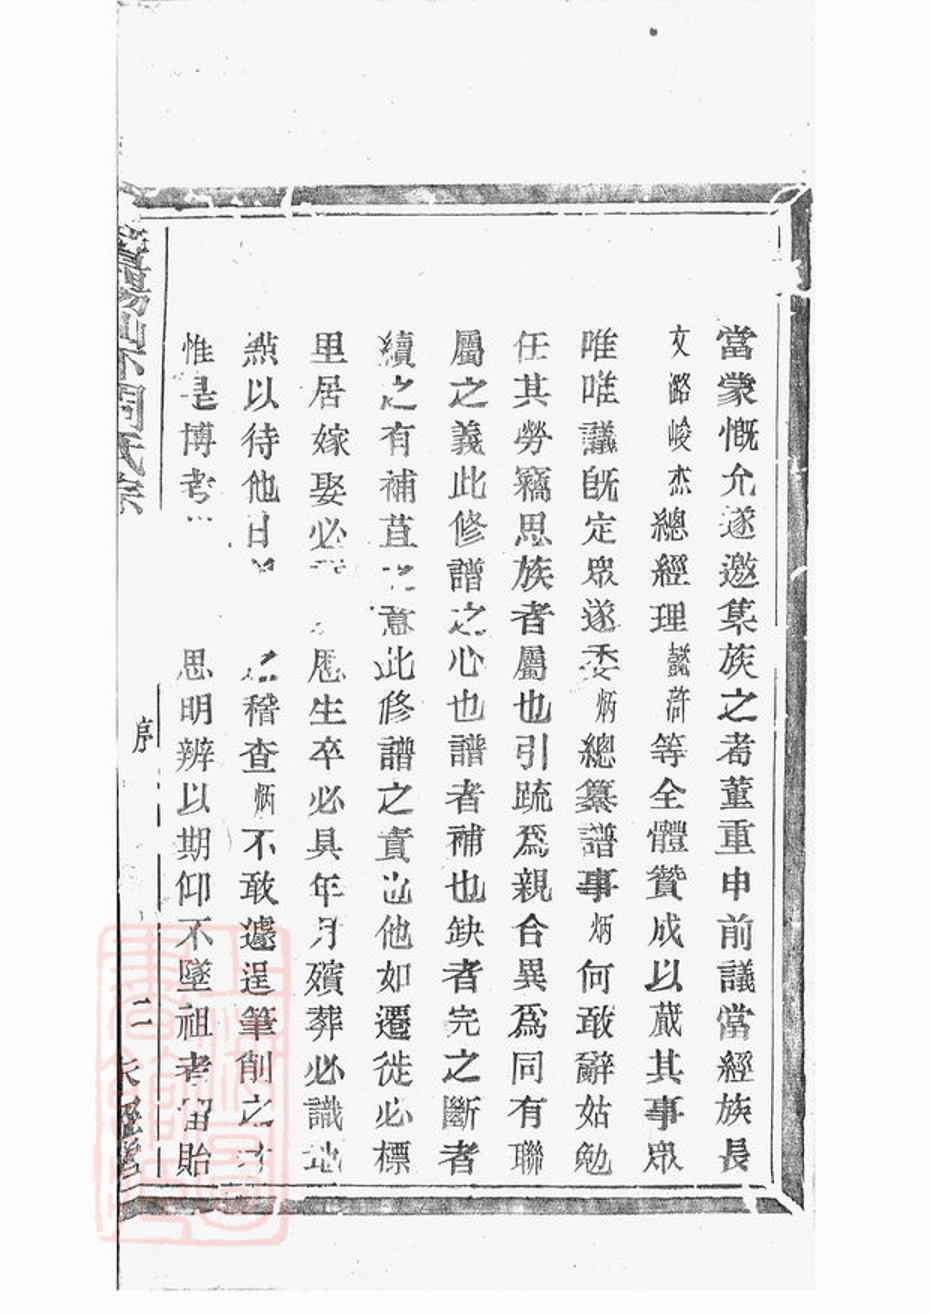 當蒙慨允遂邀集族之耆董重申前議當經族長
文潞峻杰總經理懿滸等全體贊成以蕆其事眾
唯唯議既定眾遂委炳總纂譜事炳何敢辭姑勉
任其勞竊思族者屬也引疏為親合異為同有聯
屬之義此修譜之心也譜者補也缺者完之斷者
續之有補苴之意此修譜之責也他如遷徙必標
里居嫁娶必生卒必具年月殯葬必識地
點以待他日稽查炳不敢遽逞筆削之才
惟是博考思明辨以期仰不墜祖考留貽
陽山下周氏宗
序
二